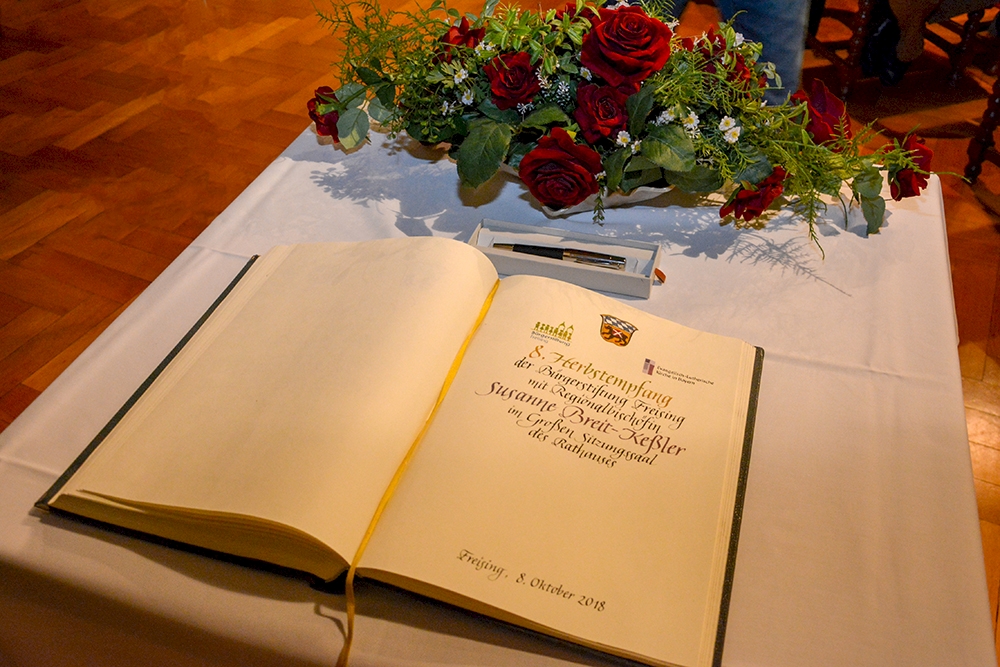 Bürgerstiftung
Freising
Evangelisch-Lutherische
Kirche in Bayern
8. Herbstempfang
der Bürgerstiftung Freising
mit Regionalbischöfin
Susanne Breit-Keßler
im Großen Sitzungssaal
des Rathauses
Freising, 8. Oktober 2018